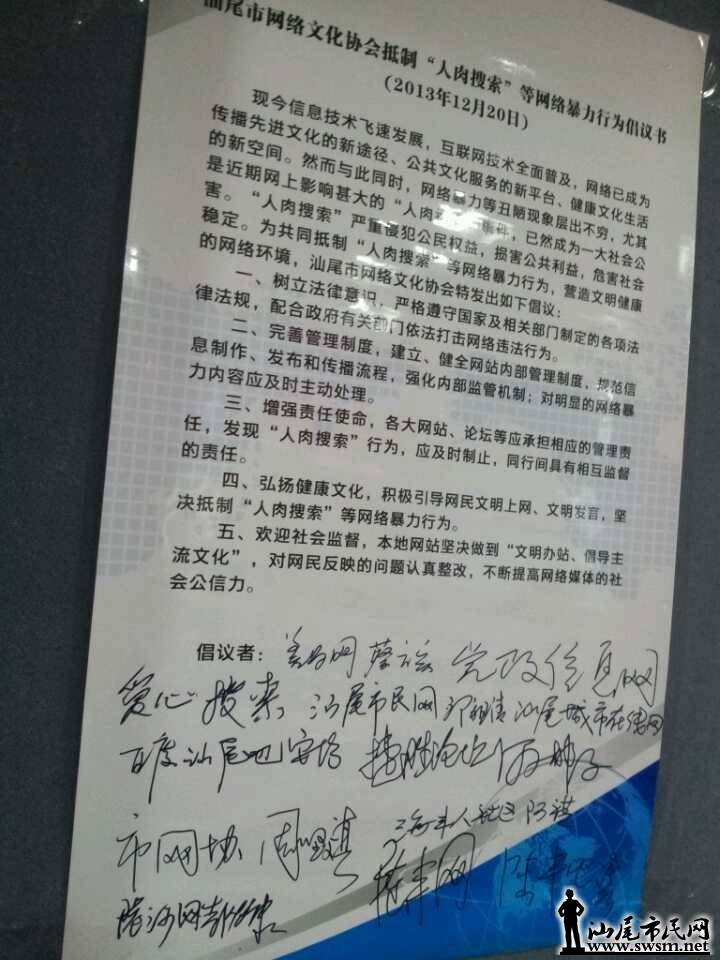 汕尾市网络文化协会抵制“人肉搜索”等网络暴力行为倡议书
(2013年12月20日)
现今信息技术飞速发展，互联网技术全面普及，网络已成为
传播先进文化的新途径、公共文化服务的新平台、健康文化生活
的新空间。然而与此同时，网络暴力等丑陋现象层出不穷，尤其
是近期网上影响甚大的“人肉 事件，已然成为一大社会公
害。“人肉搜索”严重侵犯公民权益，损害公共利益，危害社会
稳定。为共同抵制“人肉搜索”等网络暴力行为，营造文明健康
的网络环境，汕尾市网络文化协会特发出如下倡议：
一、树立法律意识，严格遵守国家及相关部门制定的各项法
律法规，配合政府有关部门依法打击网络违法行为。
二、完善管理制度，建立、健全网站内部管理制度，规范信
息制作、发布和传播流程，强化内部监管机制；对明显的网络暴
力内容应及时主动处理。
三、增强责任使命，各大网站、论坛等应承担相应的管理责
任，发现“人肉搜索”行为，应及时制止，同行间具有相互监督
的责任。
四、弘扬健康文化，积极引导网民文明上网、文明发言，坚
决抵制“人肉搜索”等网络暴力行为。
五、欢迎社会监督，本地网站坚决做到“文明办站、倡导主
流文化”，对网民反映的问题认真整改，不断提高网络媒体的社
会公信力。
倡议者： 党政信息网
爱心搜索 汕尾市民网 汕尾城市在线网
百度汕尾吧
市网协 周 海丰人社区 阿祺
汕尾市民网
www.swsm.net